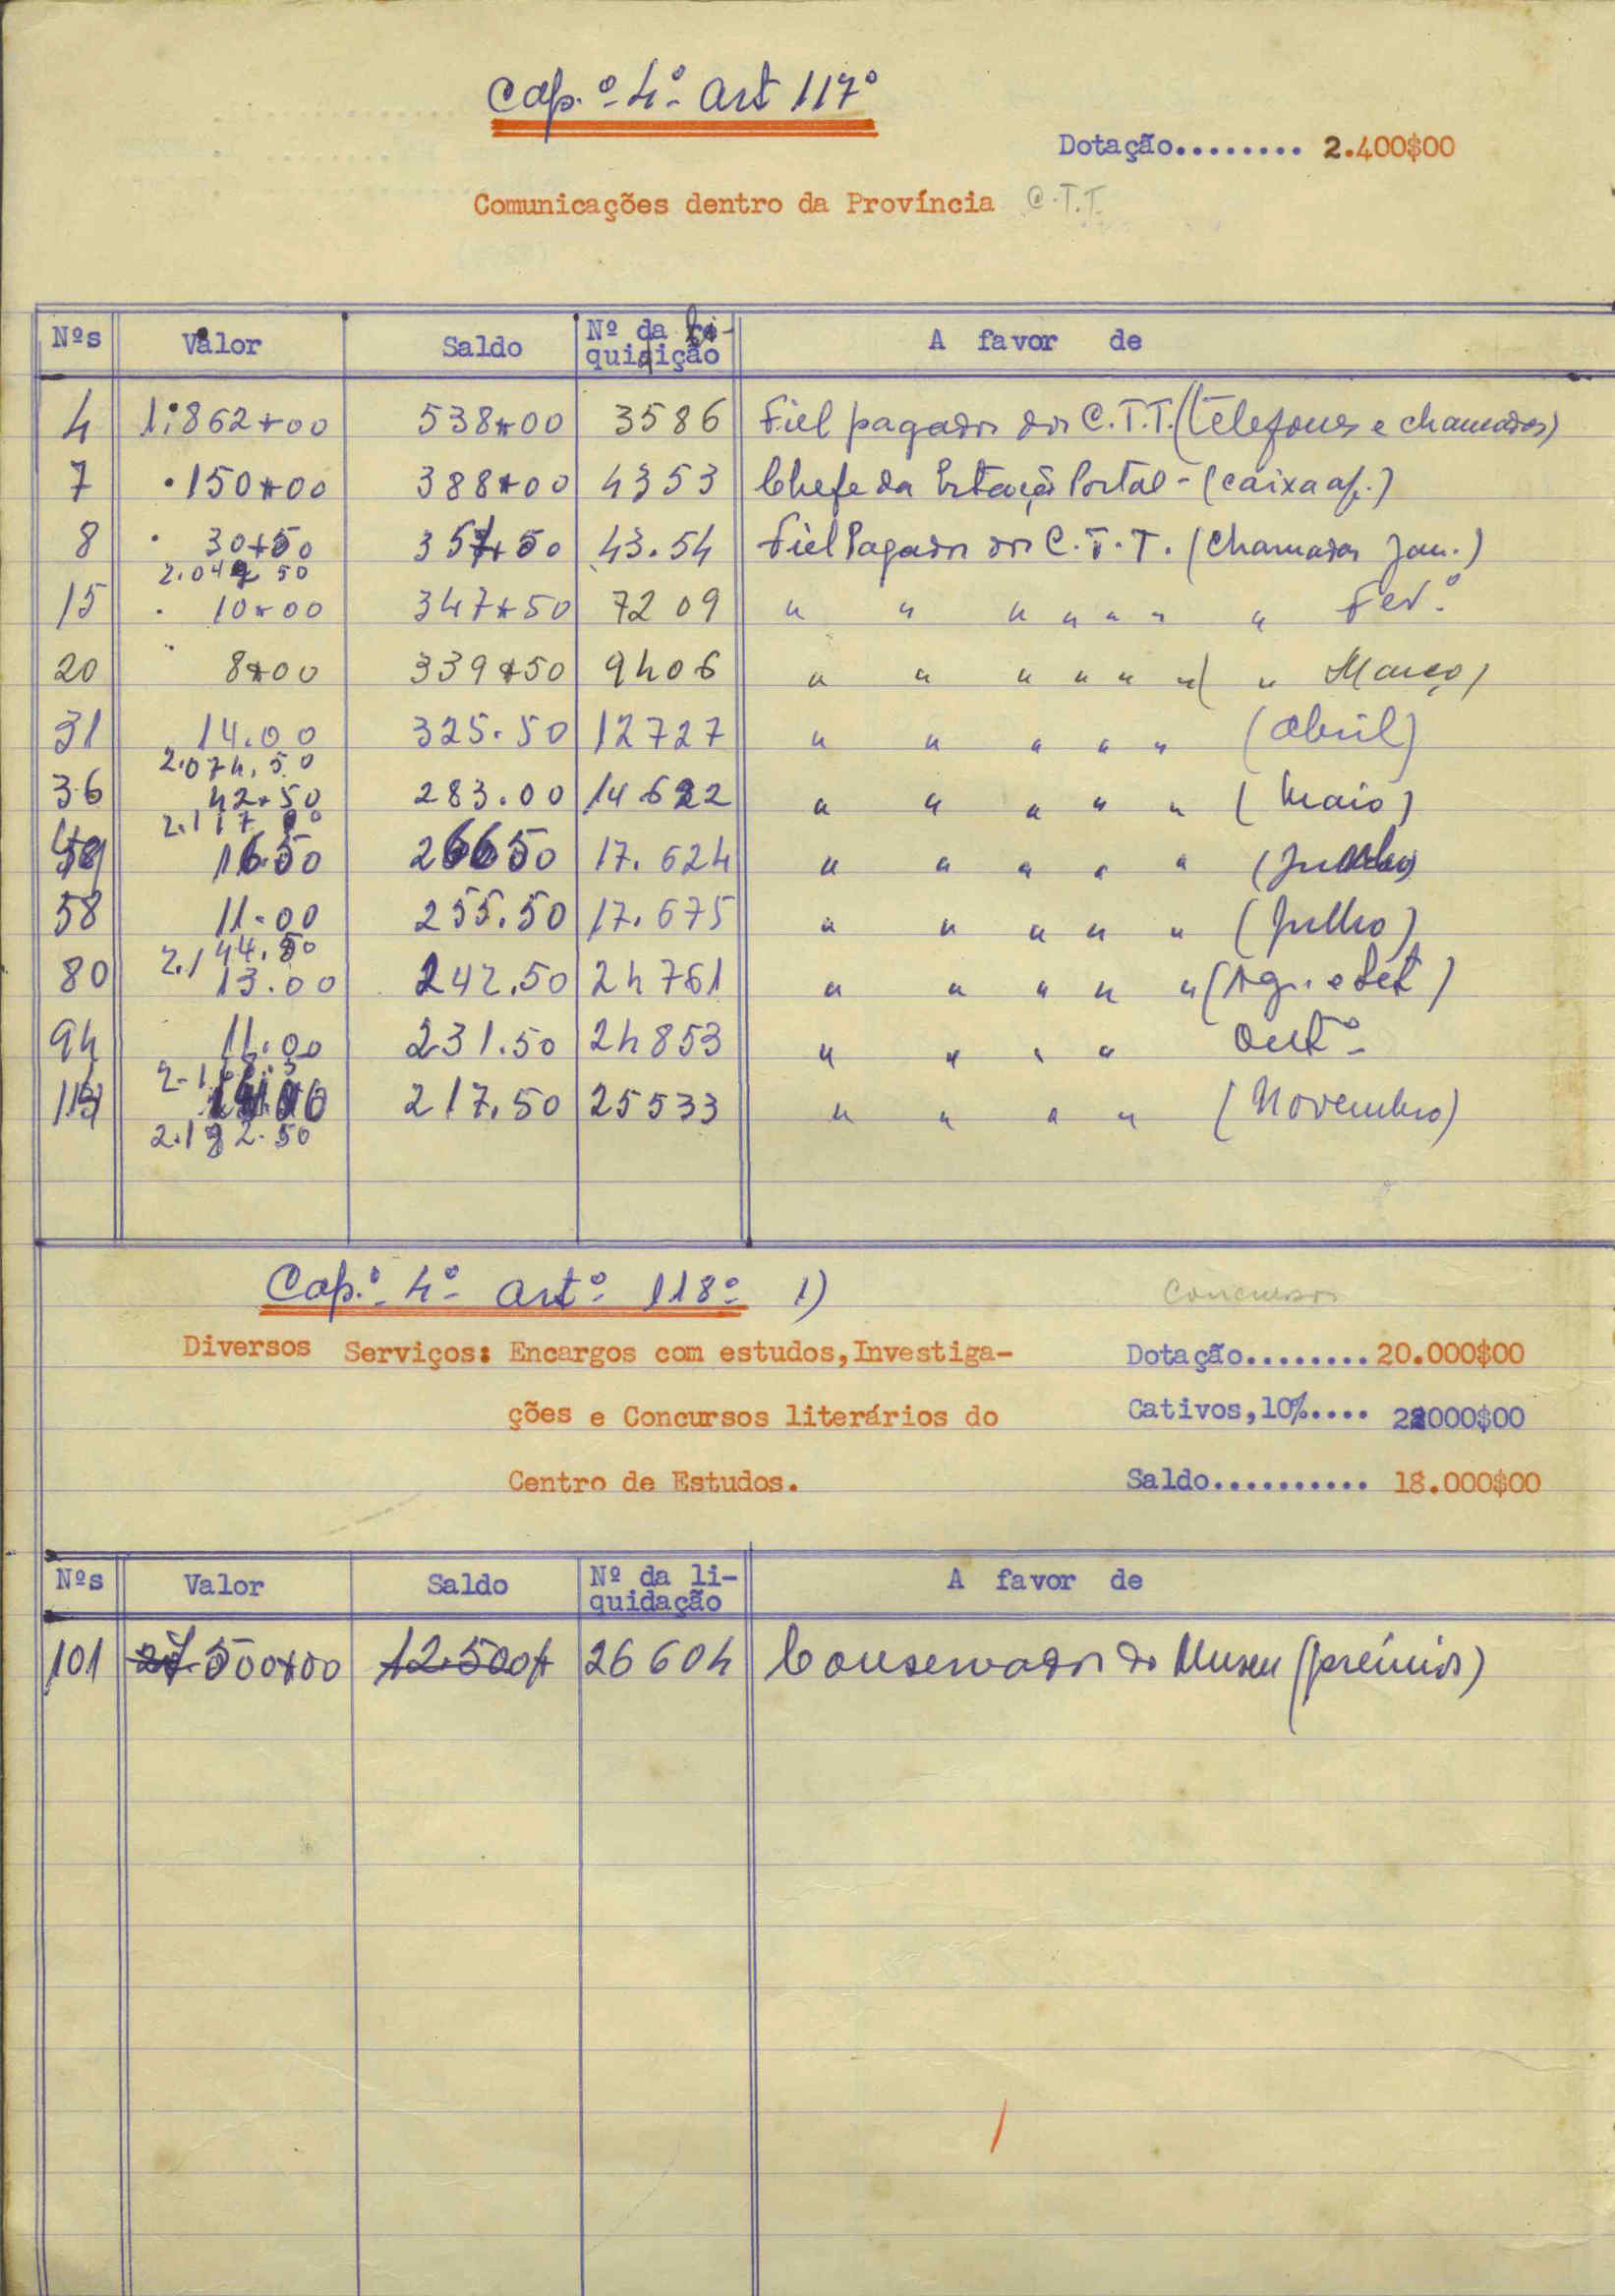 Cap.º 4º Art 117º
Dotação........ 2.400$00
Comunicações dentro da Província C.T.T.
Nºs Valor Saldo Nº da li- A favor de
quisição
4 1.862$00 538$00 3586 Fiel pagador dos C.T.T. (telefones e chamadas)
7 150$00 388$00 4353 Chefe da Estação Postal - (caixa ap.)
8 30$50 357$50 43.54 Fiel Pagador dos C.T.T. (Chamadas Jan.)
50
15 10$00 347$50 7209 " " " " " " " Fev.º
20 8$00 339$50 9406 " " " " " " ( " Março)
31 14.00 325.50 12727 " " " " " (Abril)
2.074.50
36 42$50 283.00 14622 " " " " " (Maio)
2.117
16.50 266 50 17.624 " " " " "
58 11.00 255.50 17.675 " " " " " (Julho)
2.144.50
80 13.00 242.50 24761 " " " " " (Ag. e Set)
94 11.00 231.50 24853 " " " " Outº
217.50 25533 " " " " (Novembro)
2.182.50
Cap.º 4º Artº 118º 1)
Concursos
Diversos Serviços: Encargos com estudos, Investiga- Dotação........ 20.000$00
ções e Concursos literários do Cativos, 10%.... 2.000$00
Centro de Estudos. Saldo........... 18.000$00
Nºs Valor Saldo Nº da li- A favor de
quidação
101 500$00 12.500$ 26604 Conservador do Museu (prémios)